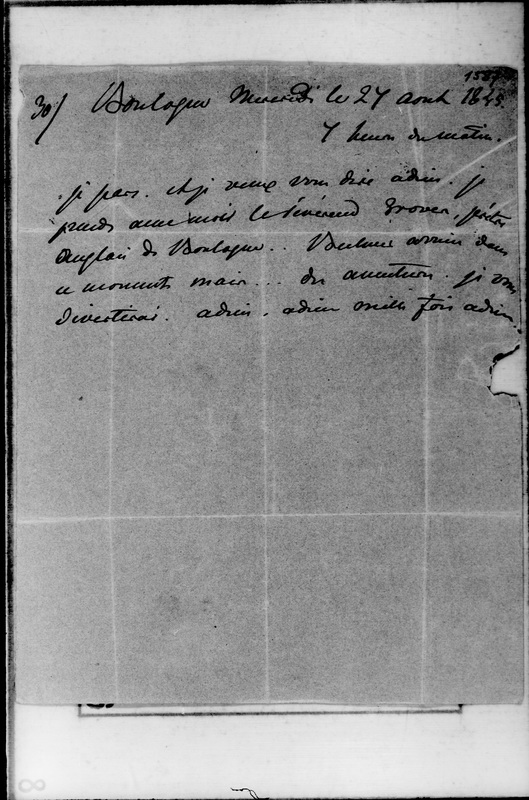 158
30/ Boulogne Mercredi le 27 août 1845.
7 heures du matin.
je pars. et je veux vous dire adieu. je
prends avec moi le Révérend Grover, pasteur
Anglais de Boulogne.. arrive dans
ce moment mais... des je vous
divertirai. adieu. adieu mille fois adieu..